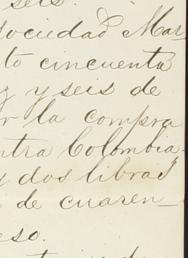 seis.
sociedad Mar
to cincuenta
y seis de
r la compra
ntra Colombia
y dos libras
de cuaren_
eso.